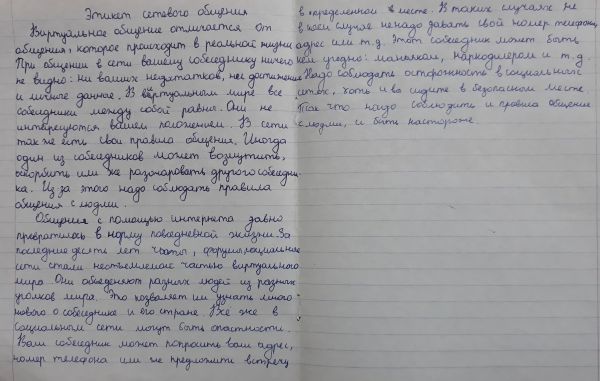 Этикет сетевого общения
Виртуальное общение отличается от
общения, которое происходит в реальной жизни
При общении в сети вашему собеседнику ничего
не видно: ни ваших недостатков, нет достижения
и личные данные. В виртуальном мире все
собеседники между собой равны. Они не
интересуются вашем положением. В сети
так же есть свои правила общения. Иногда
один из собеседников может возмутить,
оскорбить или же разочаровать другого собеседни-
ка. Из за этого надо соблюдать правила
общения с людми.
Общения с помощью интернета давно
превратилось в норму повседневной жизни. За
последние десять лет чаты, форумы, социальные
сети стали неотъемлемой частью виртуального
мира. Они обьеденяют разных людей из разных
уголков мира. Это позволяет им узнать много
нового о собеседнике и его стране. Всё же в
социальном сети могут быть опастности.
Вам собеседник может попросить ваш адрес,
номер телефона или же предложить встречу
в определенном месте. В таких случаях не
в коем случае ненадо давать свой номер телефона,
адрес или т.д. Этот собеседник может быть
кем угодно: маньяком, наркодилером и т.д.
Надо соблюдать осторожность в социальных
сетях, хоть и вы сидите в безопасном месте.
Так что надо соблюдить и правила общение
с людми, и быть настороже.